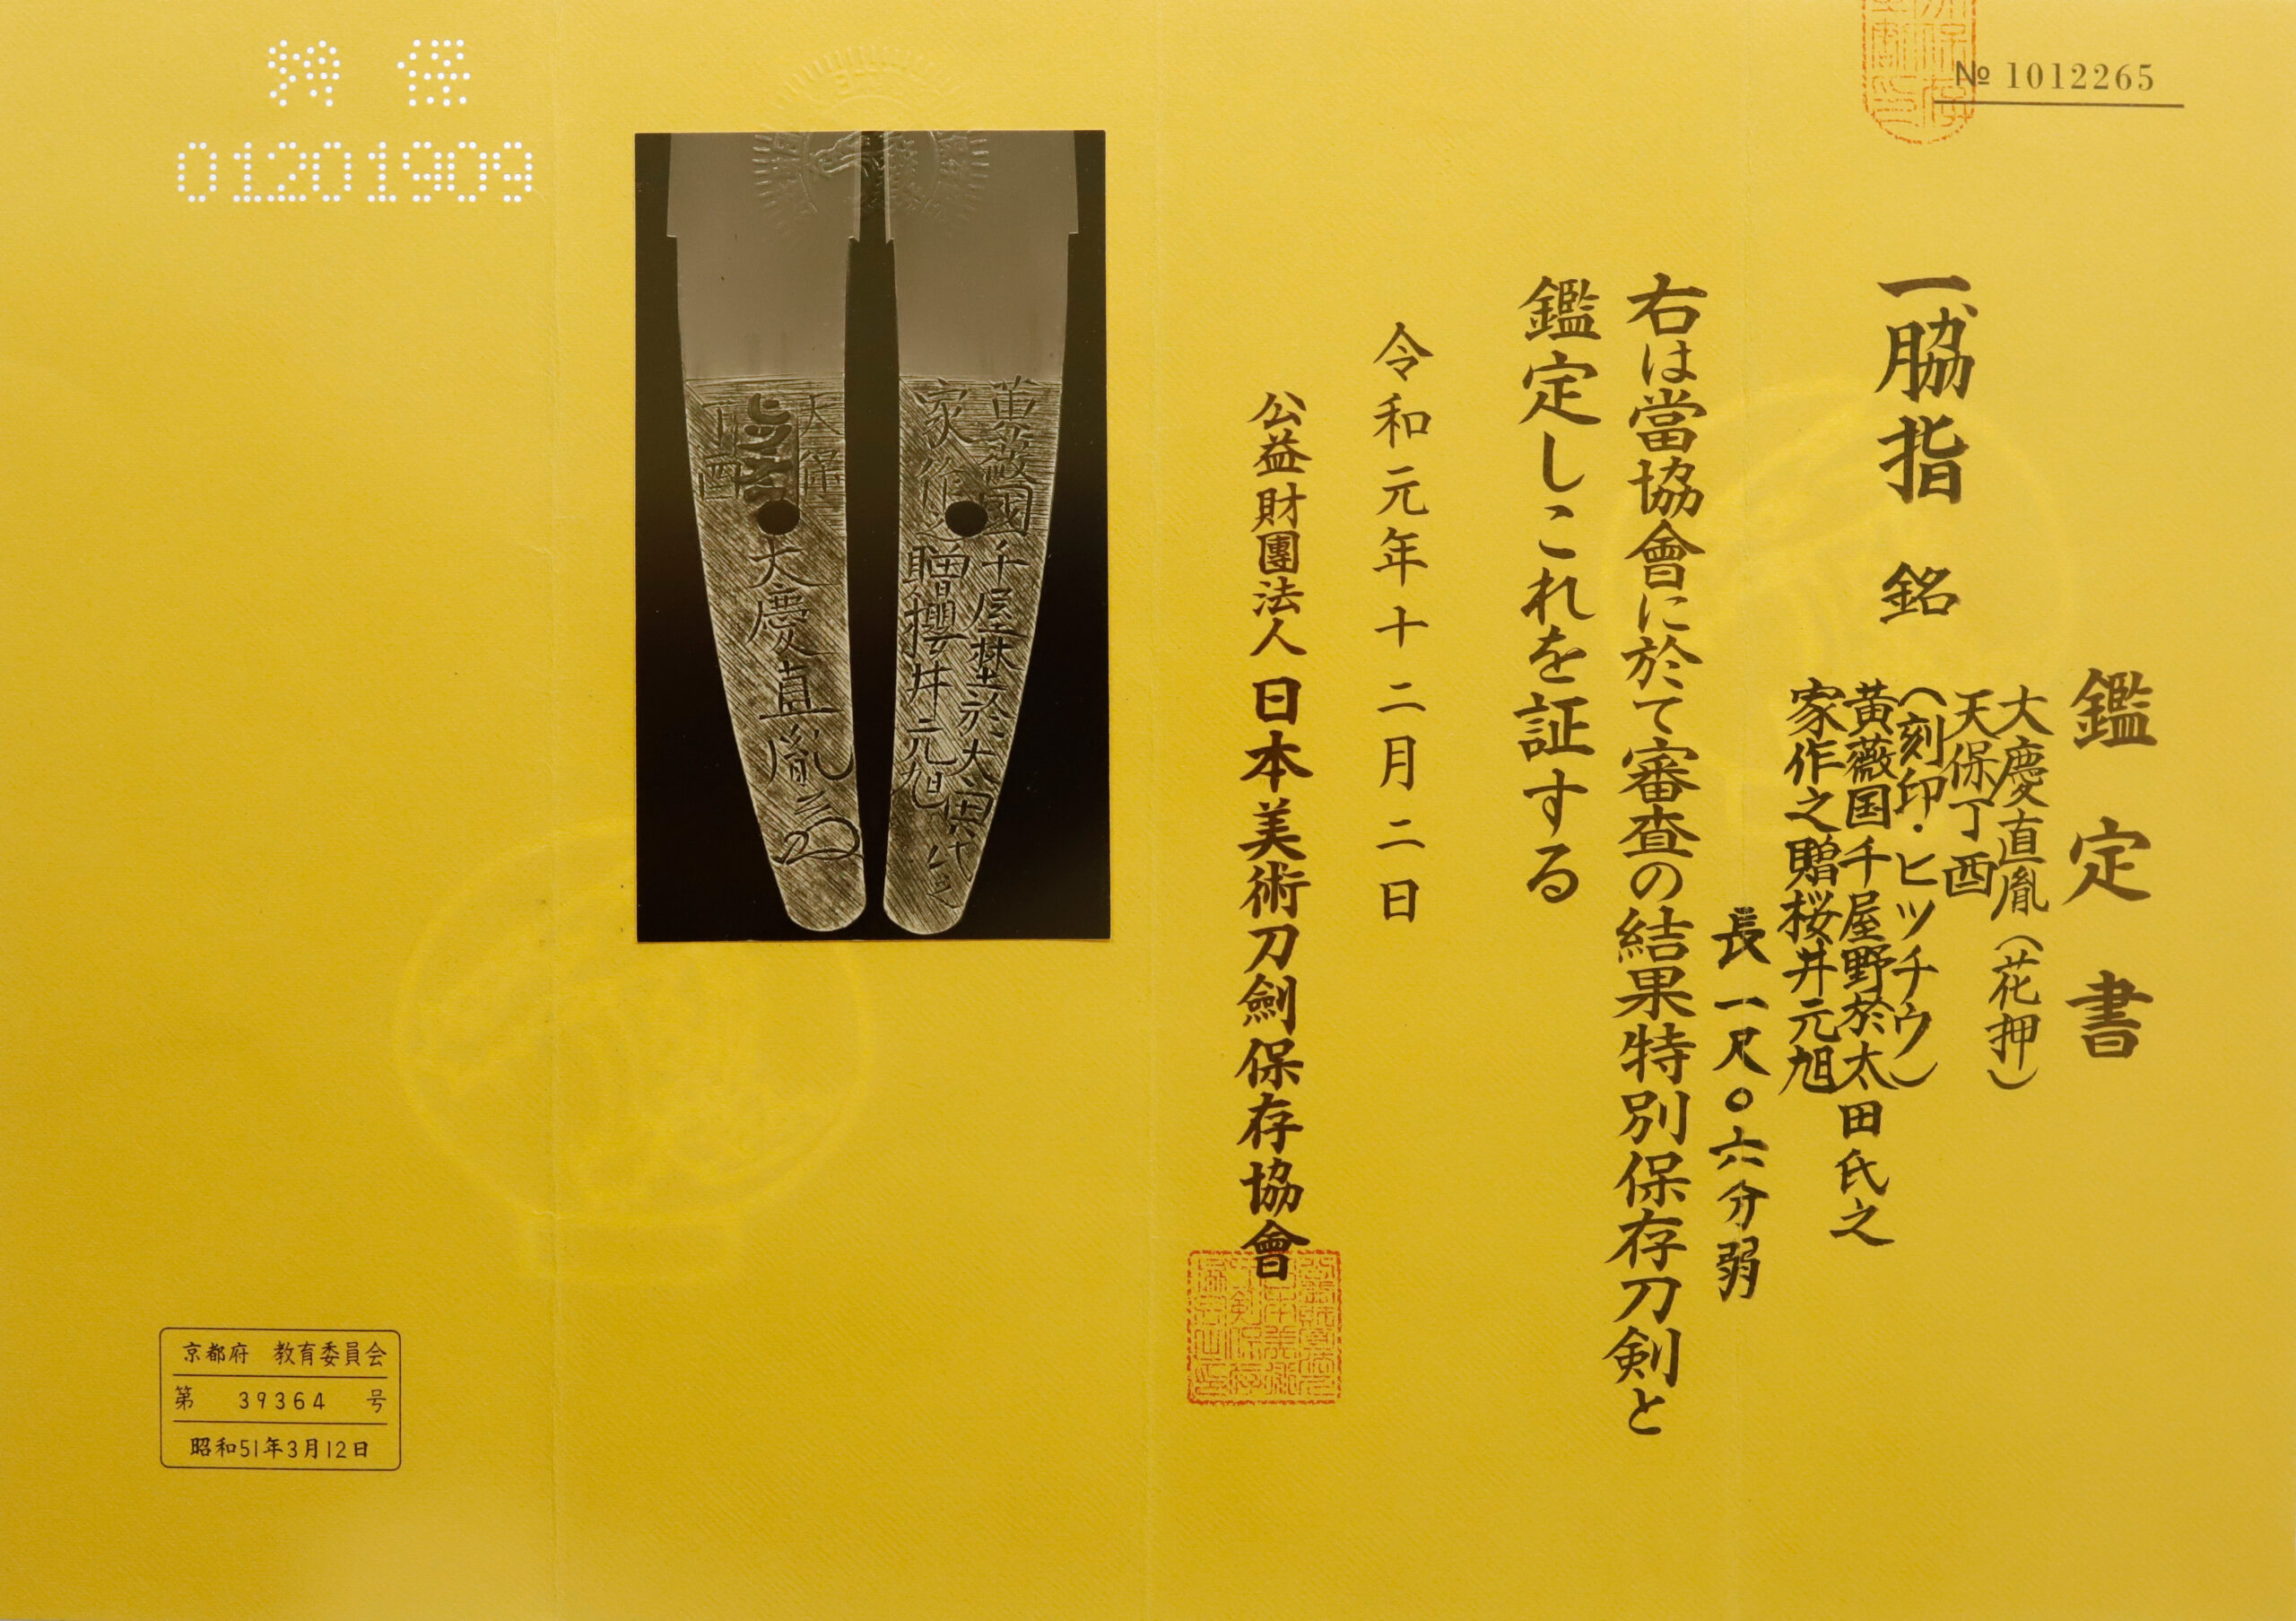 № 1012265
鑑定書
一、脇指 銘
大慶直胤（花押）
天保丁酉
（刻印・ヒツチウ）
黄薇国千屋野於太田氏之
家作之贈桜井元旭
長一尺〇六分弱
右は當協會に於て審査の結果特別保存刀剣と
鑑定しこれを証する
令和元年十二月二日
公益財團法人日本美術刀劍保存協會
黄薇國千屋埜於太田氏之
家作之贈櫻井元旭
天保
丁酉
大慶直胤
特保
01201909
京都府 教育委員会
第 39364 号
昭和51年3月12日